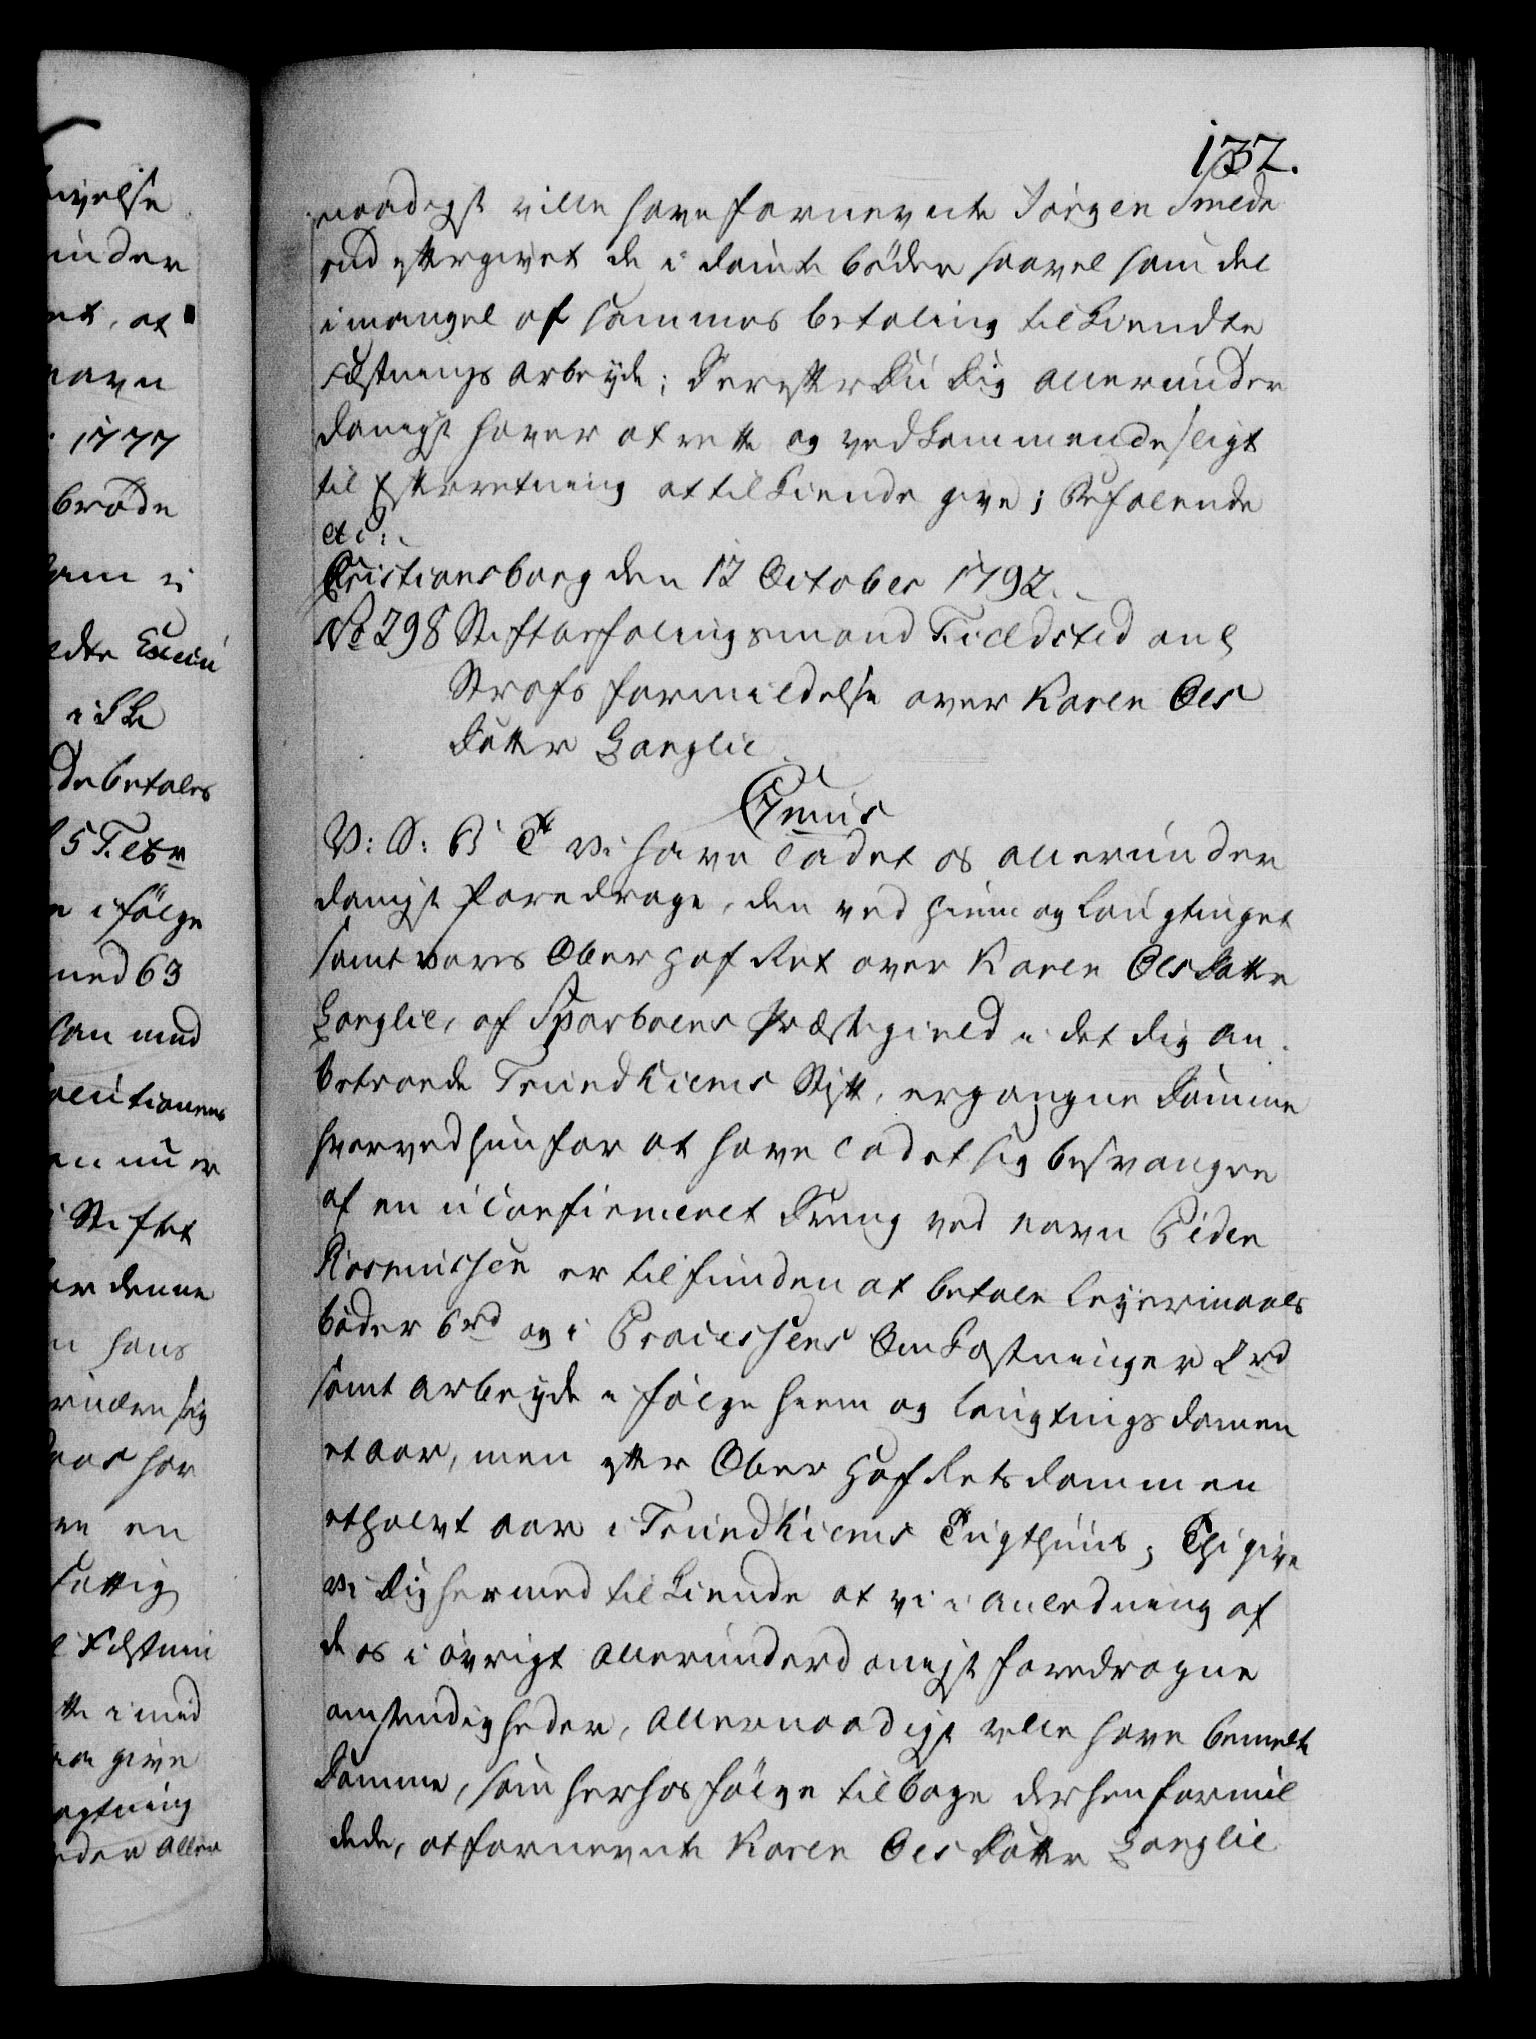 132.
naadigst ville have fornevnte Jörgen Smede
end eftergivet de i dömte böder saavel som det
i mangel af sammes betaling tilkiendte
Fæstnings Arbeyde; Derefter Du Dig allerunder
danigst haver at rette og vedkommende sligt
til Efterretning at tilkiende give; Befalende
etc:
Cristiansborg den 12 October 1792.
No 298 Stiftbefalingsmand Fieldsted anl
Strafs formildelse over Karen Ols
Datter Langlie
C7mus
V: S: B: T Vi have ladet os allerunder
danigst foredrage, den ved Hiem og Laugtinget
samt vores Ober Hof Ret over Karen Olsdatter
Langlie, af Sparboens Præstegield i det dig an
betroede Trundhiems Stift, ergangne Domme
hvorved hun for at have ladet sig besvangre
af en uconfirmeret Dreng ved navn Peder
Rasmussen er tilfunden at betale Leyermaals
böder 6rd og i Processens Omkostninger 2rd
samt Arbeyde i fölge Hiem og Laugtings domen
et aar, men efter Ober Hof Rets dommen
et halvt aar i Trundhiems Tugthuus; Thi give
vi Dig hermed tilkiende at vi i anledning af
de os i övrigt allerunderdanigst foredragne
omstendigheder, allernaadigst ville have bemelte
Domme, som herhos fölge tilbage derhen formil
dede, at fornevnte Karen Ols Datter Langlie